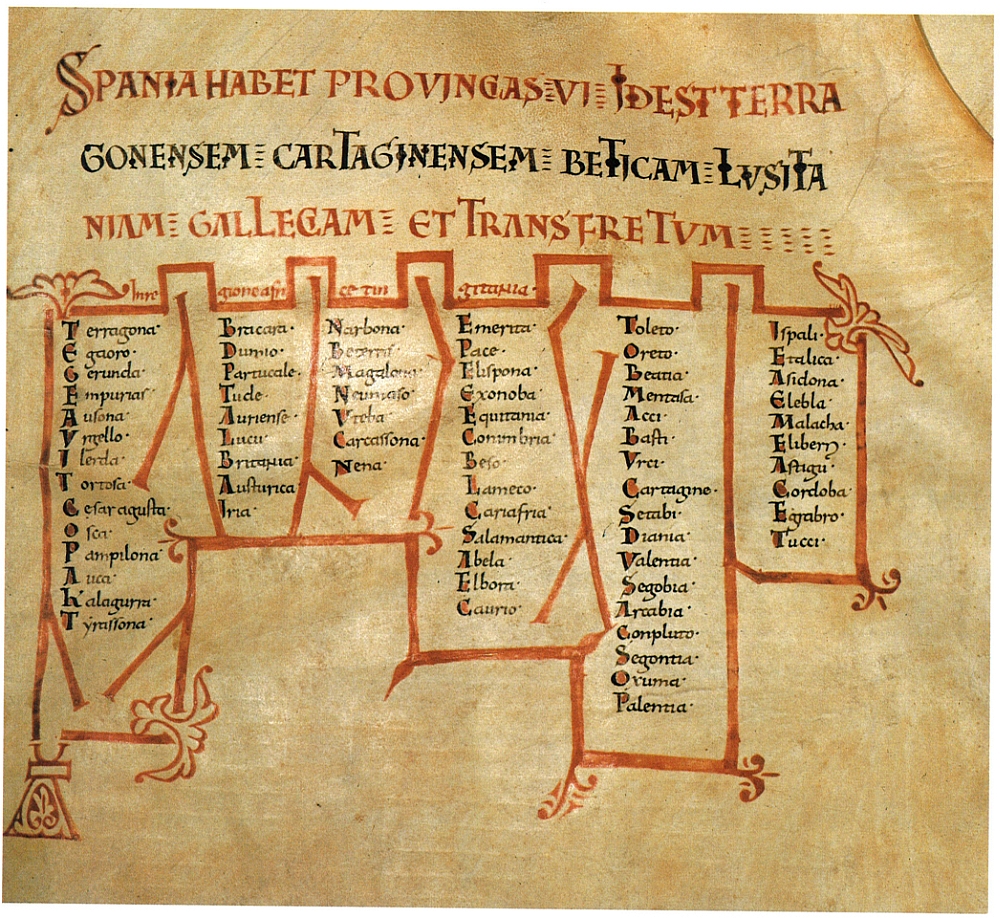 SPANIA HABET PROVINCAS VI IDEST TERRA
GONENSEM CARTAGINENSEM BETICAM LUSITA
NIAM GALLECAM ET TRANSFRETUM
Inre gioneafri ce tin gitania
Terragona
Egaoro
Gerunda
Empurias
Ausona
Vrgello
Ilerda
Tortosa
Cesaragusta
Osca
Pampilona
Auca
Kalagurra
Tyrassona
Bracara
Dumio
Partucale
Tude
Auriense
Lucu
Britania
Austurica
Iria
Narbona
Beterris
Magalona
Neumaso
Vteba
Carcassona
Nena
Emerita
Pace
Elispona
Exonoba
Equitania
Conimbria
Beso
Lameco
Cariafria
Salamantica
Abela
Elbora
Caurio
Toleto
Oreto
Beatia
Mentasa
Acci
Basti
Vrci
Cartagine
Setabi
Diania
Valentia
Segobia
Arcabia
Conpluto
Segontia
Oxuma
Palentia
Ispali
Etalica
Asidona
Elebla
Malacha
Eliberri
Astigu
Cordoba
Egabro
Tucci